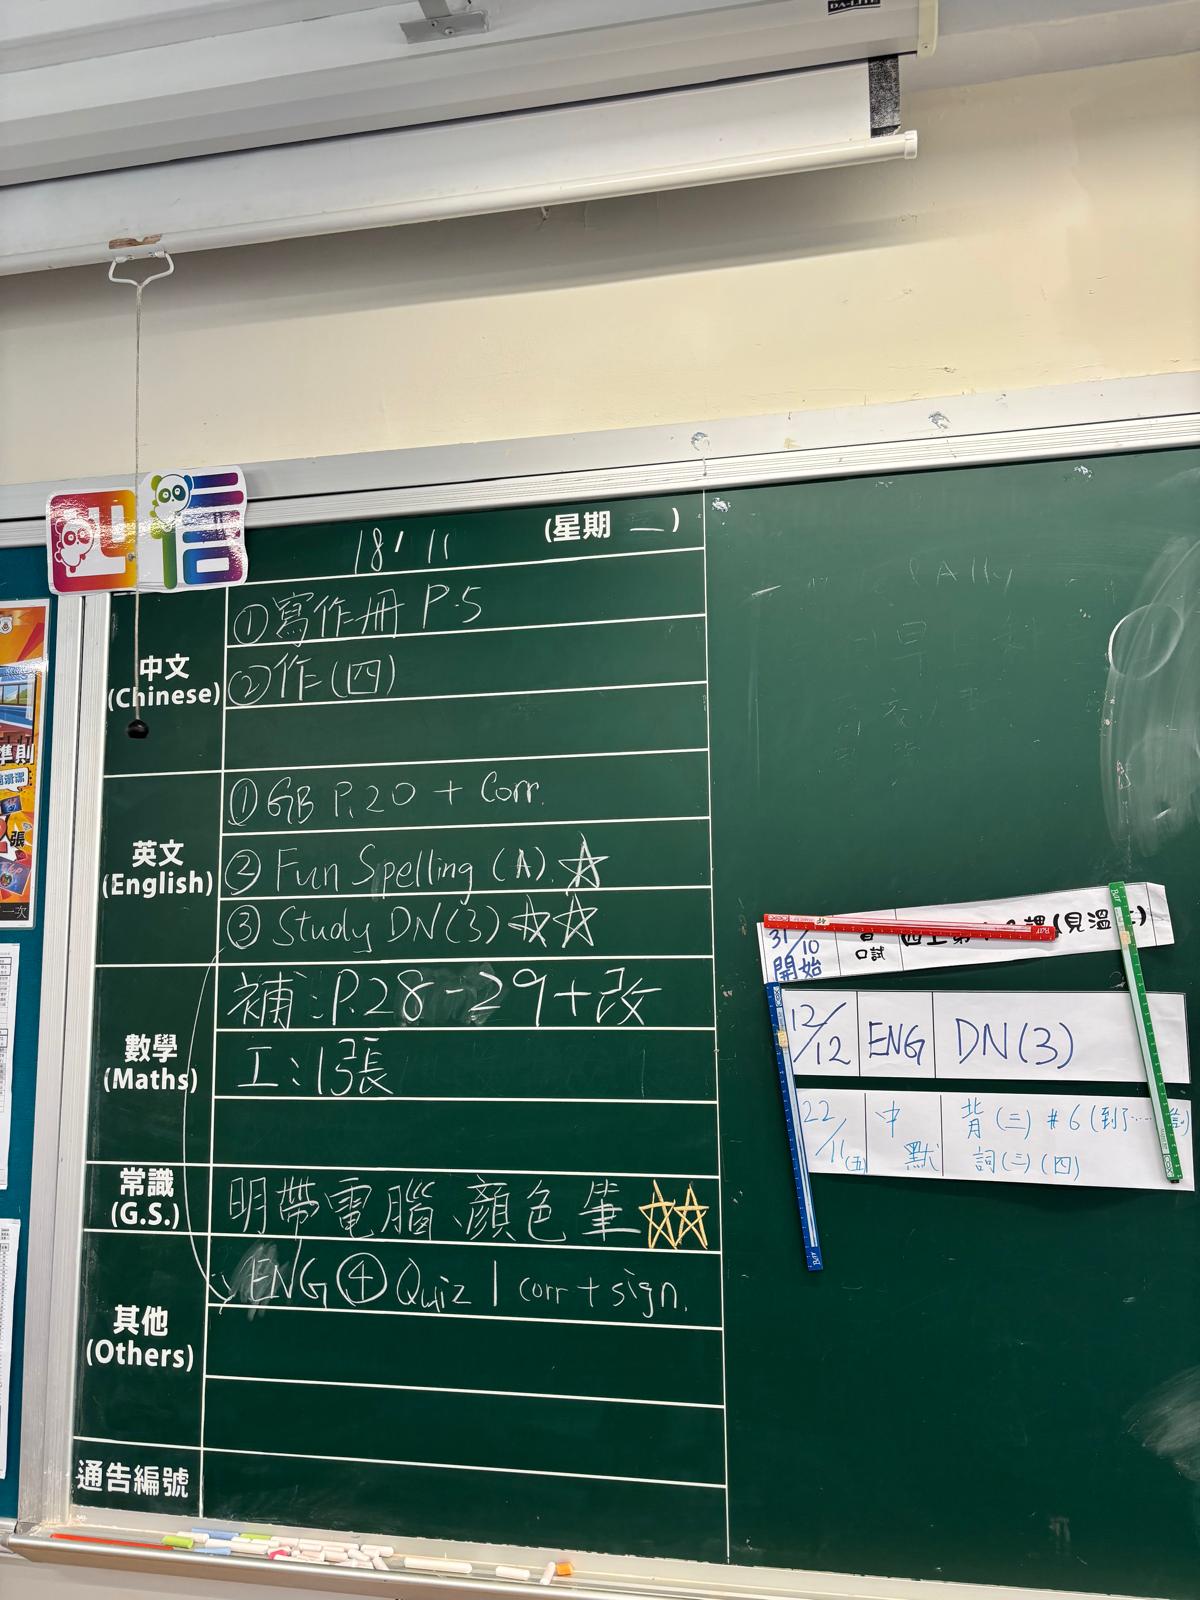 DA-LITE
四信
18/11 (星期一)
中文
(Chinese)
①寫作冊 P.5
②作(四)
英文
(English)
①GB P.20 + Corr.
②Fun Spelling (A). ☆
③Study DN(3) ☆☆
數學
(Maths)
補:P.28-29+改
工:1張
常識
(G.S.)
明帶電腦、顏色筆☆☆
其他
(Others)
ENG ④ Quiz 1 corr + sign.
通告編號
準則
張
一次
31/10
開始
口試
(見溫
12/12 ENG DN(3)
22/11(五) 中默 背(三)#6(到了……
詞(三)(四)